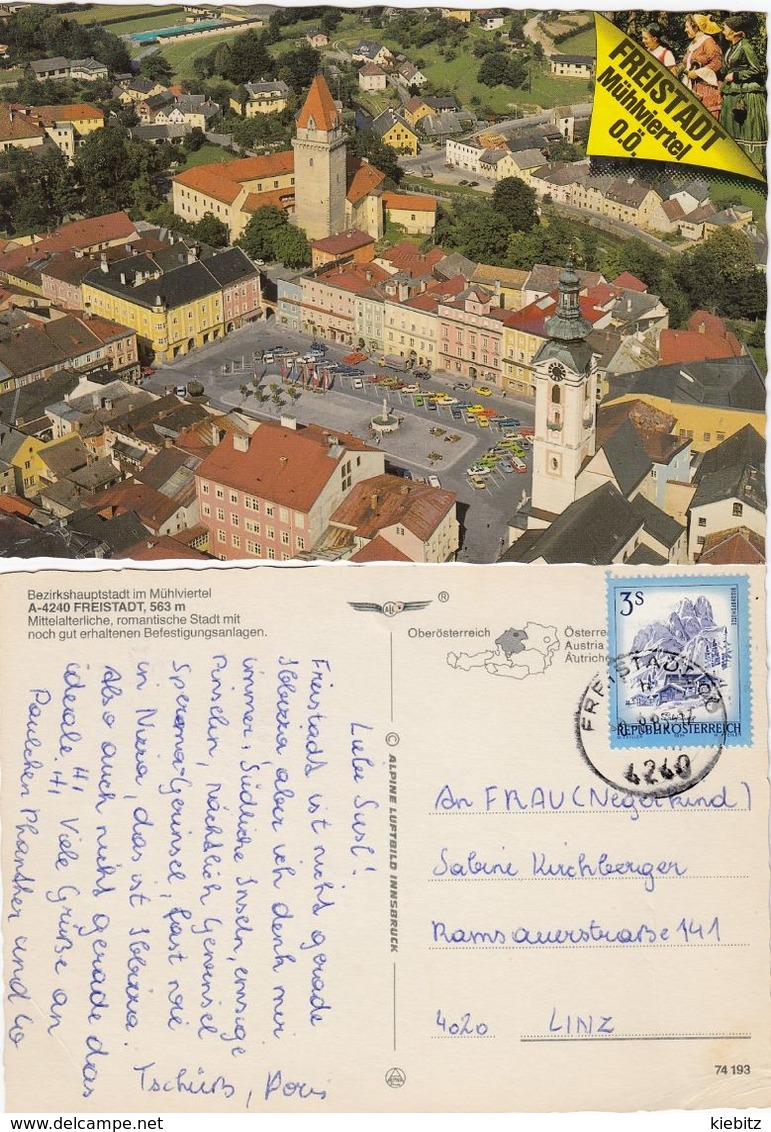 FREISTADT
Mühlviertel
O.Ö.
Bezirkshauptstadt im Mühlviertel
A-4240 FREISTADT, 563 m
Mittelalterliche, romantische Stadt mit
noch gut erhaltenen Befestigungsanlagen.
Liebe Susl!
Freistadt ist nicht gerade
Ibbizia, aber ich denk mir
immer, Südliche Inseln, emsige
Pinseln, nächtlich Gewinsel
Sperma-Gerinsel, fast nie
in Nizza, das ist Ibbizza.
Also auch nicht gerade das
ideale. Viele Grüße an
Paulchen Phanther und Co
Tschüß, Doris
© ALPINE LUFTBILD INNSBRUCK
ALC
®
Oberösterreich
Österre
Austria
Autrich
3S
BISCHOFSMÜTZE
REPUBLIK ÖSTERREICH
FREISTADT, OÖ
4240
An FRAU (Negerkind)
Sabine Kirchberger
Ramsauerstraße 141
4020 LINZ
74 193
kiebitz